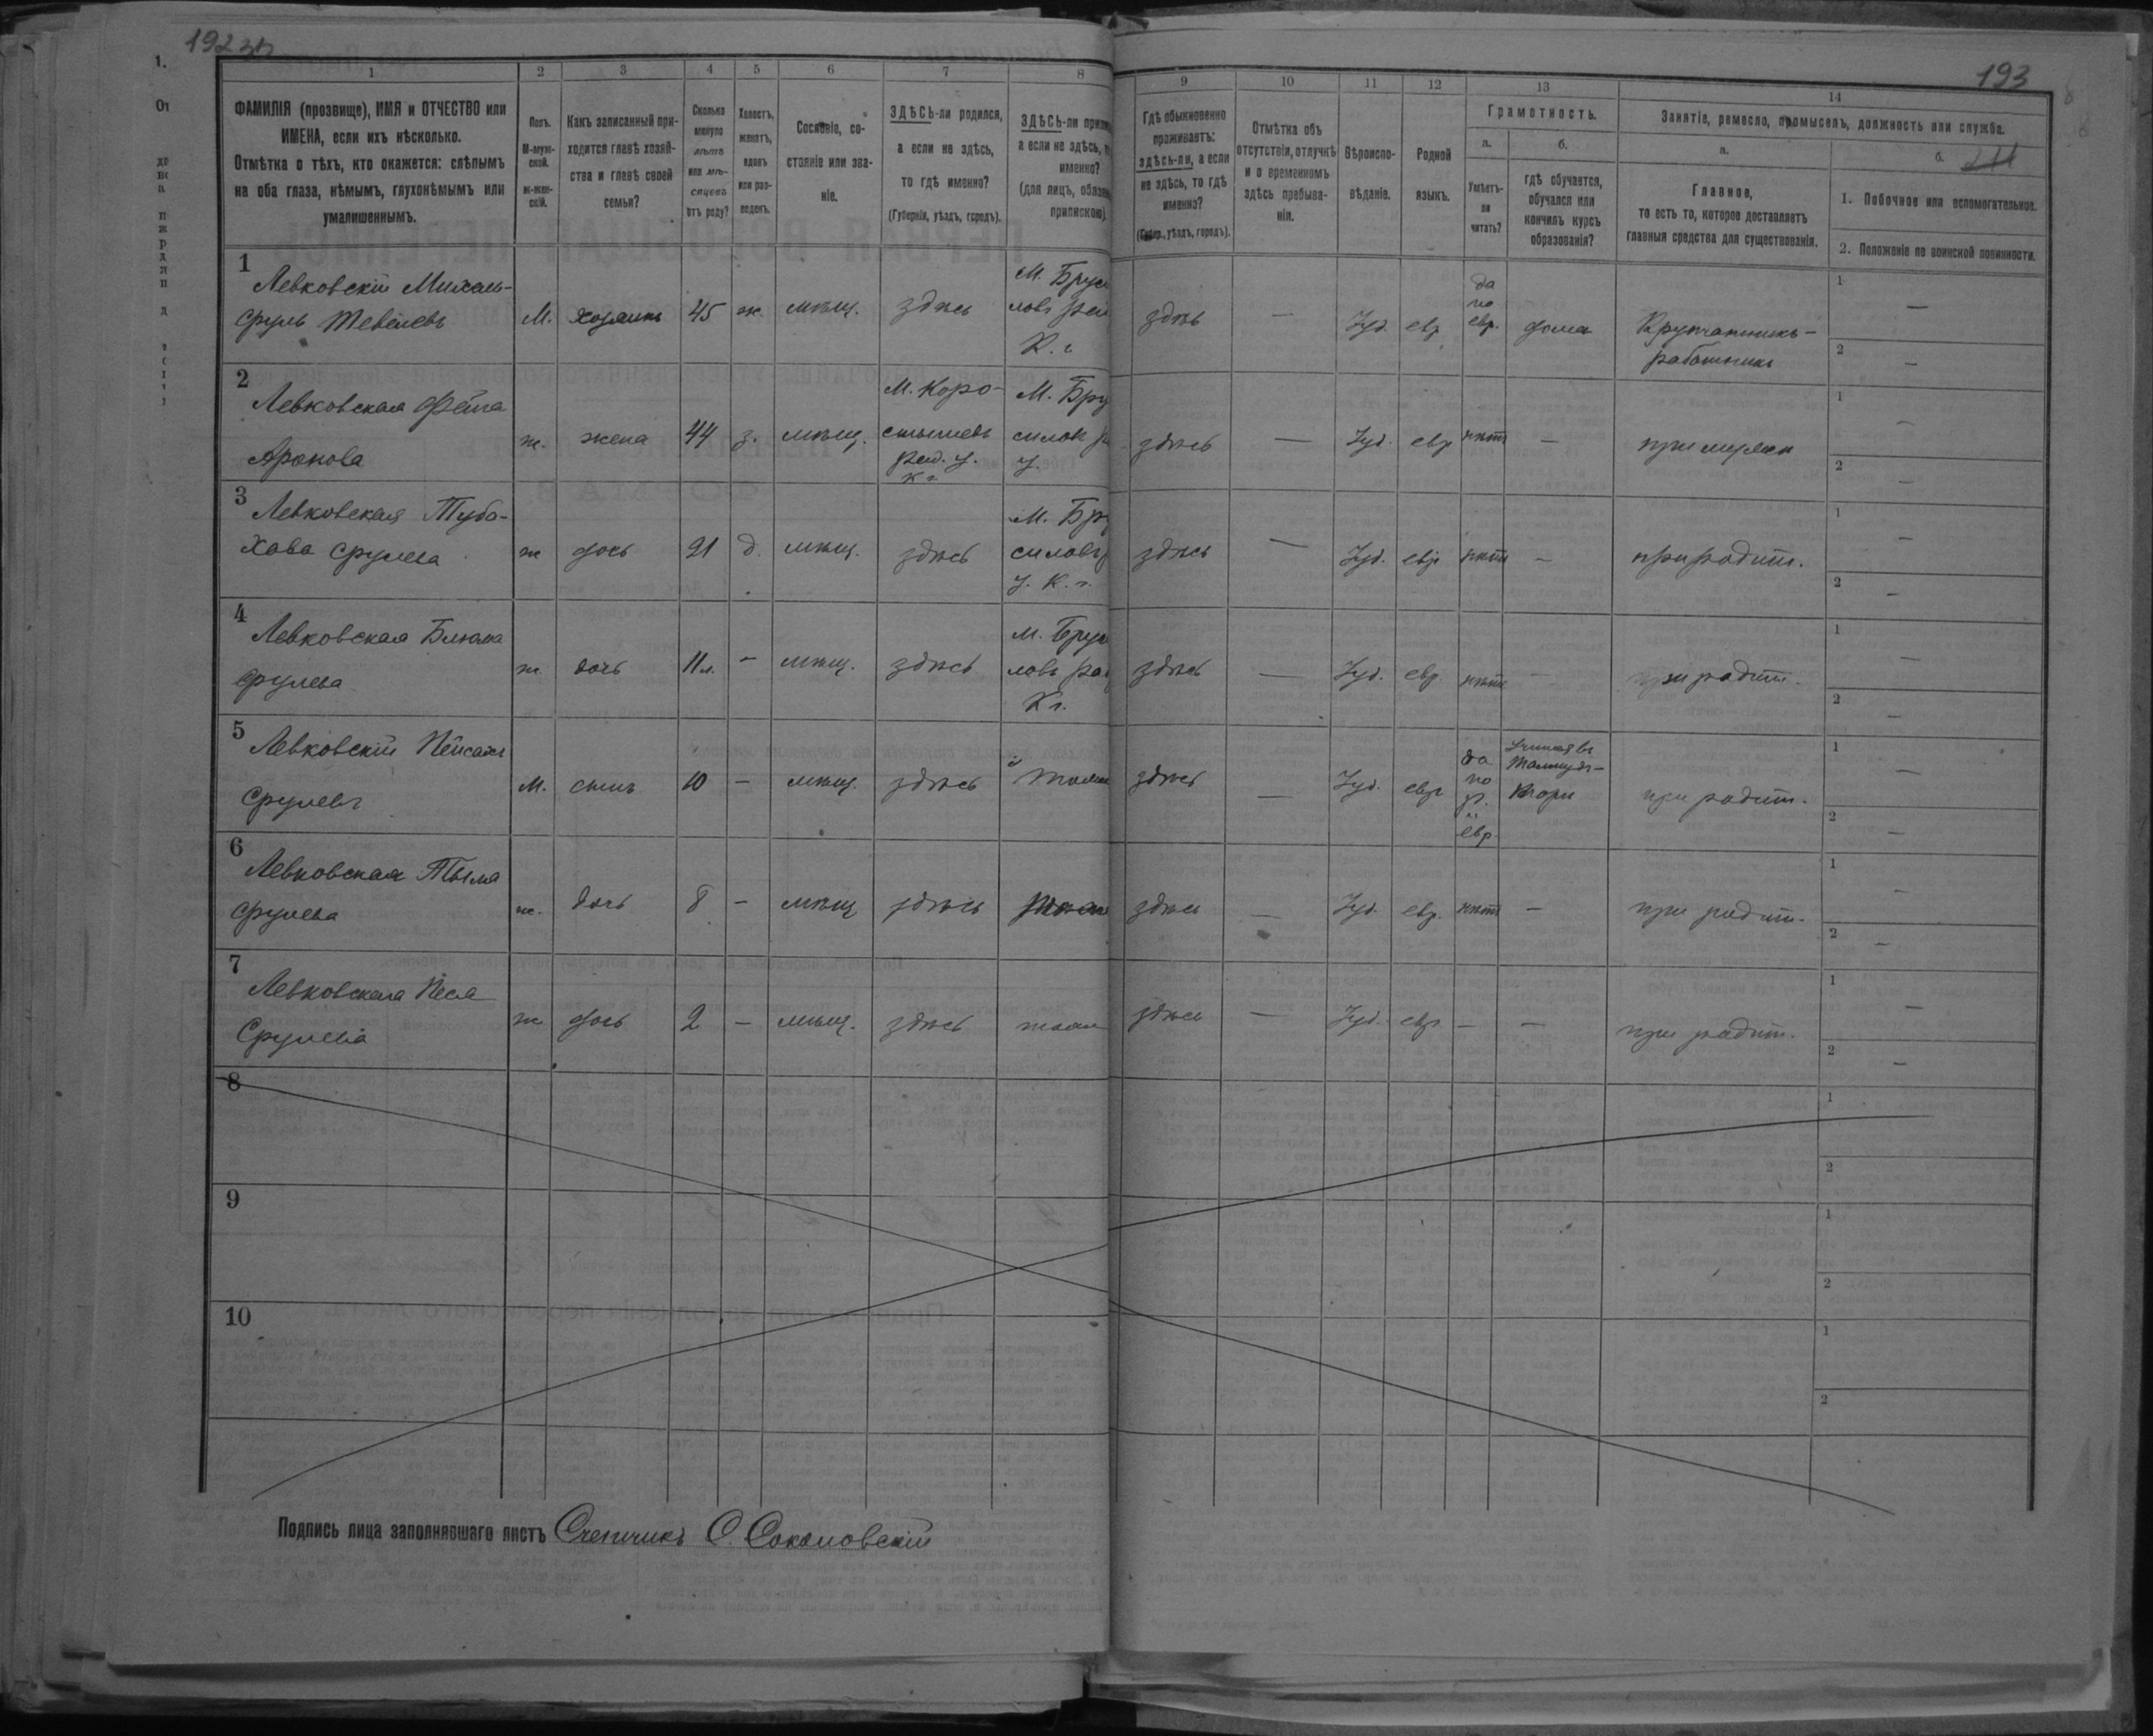 192 зв
193
1 2 3 4 5 6 7 8 9 10 11 12 13 14
ФАМИЛІЯ (прозвище), ИМЯ и ОТЧЕСТВО или
ИМЕНА, если ихъ нѣсколько.
Отмѣтка о тѣхъ, кто окажется: слѣпымъ
на оба глаза, нѣмымъ, глухонѣмымъ или
умалишеннымъ.
Полъ.
М-муж-
ской.
ж-жен-
скій.
Какъ записанный при-
ходится главѣ хозяй-
ства и главѣ своей
семьи?
Сколько
минуло
лѣтъ
или мѣ-
сяцевъ
отъ роду?
Холостъ,
женатъ,
вдовъ
или раз-
веденъ.
Сословіе, со-
стояніе или зва-
ніе.
ЗДѢСЬ-ли родился,
а если не здѣсь,
то гдѣ именно?
(Губернія, уѣздъ, городъ).
ЗДѢСЬ-ли
а если не здѣсь,
именно?
(для лицъ,
припискою)
Гдѣ обыкновенно
проживаетъ:
здѣсь-ли, а если
не здѣсь, то гдѣ
именно?
(Губер., уѣздъ, городъ).
Отмѣтка объ
отсутствіи, отлучкѣ
и о временномъ
здѣсь пребыва-
ніи.
Вѣроиспо-
вѣданіе.
Родной
языкъ.
Грамотность.
а.
Умѣетъ-
ли
читать?
б.
гдѣ обучается,
обучался или
кончилъ курсъ
образованія?
Занятіе, ремесло, промыселъ, должность или служба.
а.
Главное,
то есть то, которое доставляетъ
главныя средства для существованія.
б.
1. Побочное или вспомогательное.
2. Положеніе по воинской повинности.
1
Левковскій Михаль-
Сруль Тевелевъ
М. хозяинъ 45 ж. мѣщ. здѣсь
здѣсь — Іуд. евр.
да
по
евр.
дома
Крупчатникъ-
работникъ
1 —
2 —
2
Левковская Фейга
Аронова
ж. жена 44 з. мѣщ.
М. Коро-
стышевъ
Рад. у.
К г.
здѣсь — Іуд. евр нѣтъ — при мужѣ
1 —
2 —
3
Левковская Туба-
Хава Срулева
ж дочь 21 д. мѣщ. здѣсь
у. К. г.
здѣсь — Іуд. евр нѣтъ — при родит.
1 —
2 —
4
Левковская Блюма
Срулева
ж дочь 11 л. — мѣщ. здѣсь
К г.
здѣсь — Іуд. евр. нѣтъ — при родит.
1 —
2 —
5
Левковскій Пейсахъ
Срулевъ
М. сынъ 10 — мѣщ. здѣсь
здѣсь — Іуд. евр
да
по
р.
и
евр.
Талмудъ-
Торѣ
при родит.
1 —
2 —
6
Левковская
Срулева
ж. дочь 8 — мѣщ здѣсь
здѣсь — Іуд. евр. нѣтъ — при родит.
1 —
2 —
7
Левковская Песя
Срулева
ж дочь 2 — мѣщ. здѣсь
здѣсь — Іуд. евр — — при родит.
1 —
2 —
8
1
2
9
1
2
10
1
2
Подпись лица заполнявшаго листъ Счетчикъ С. Соколовскій